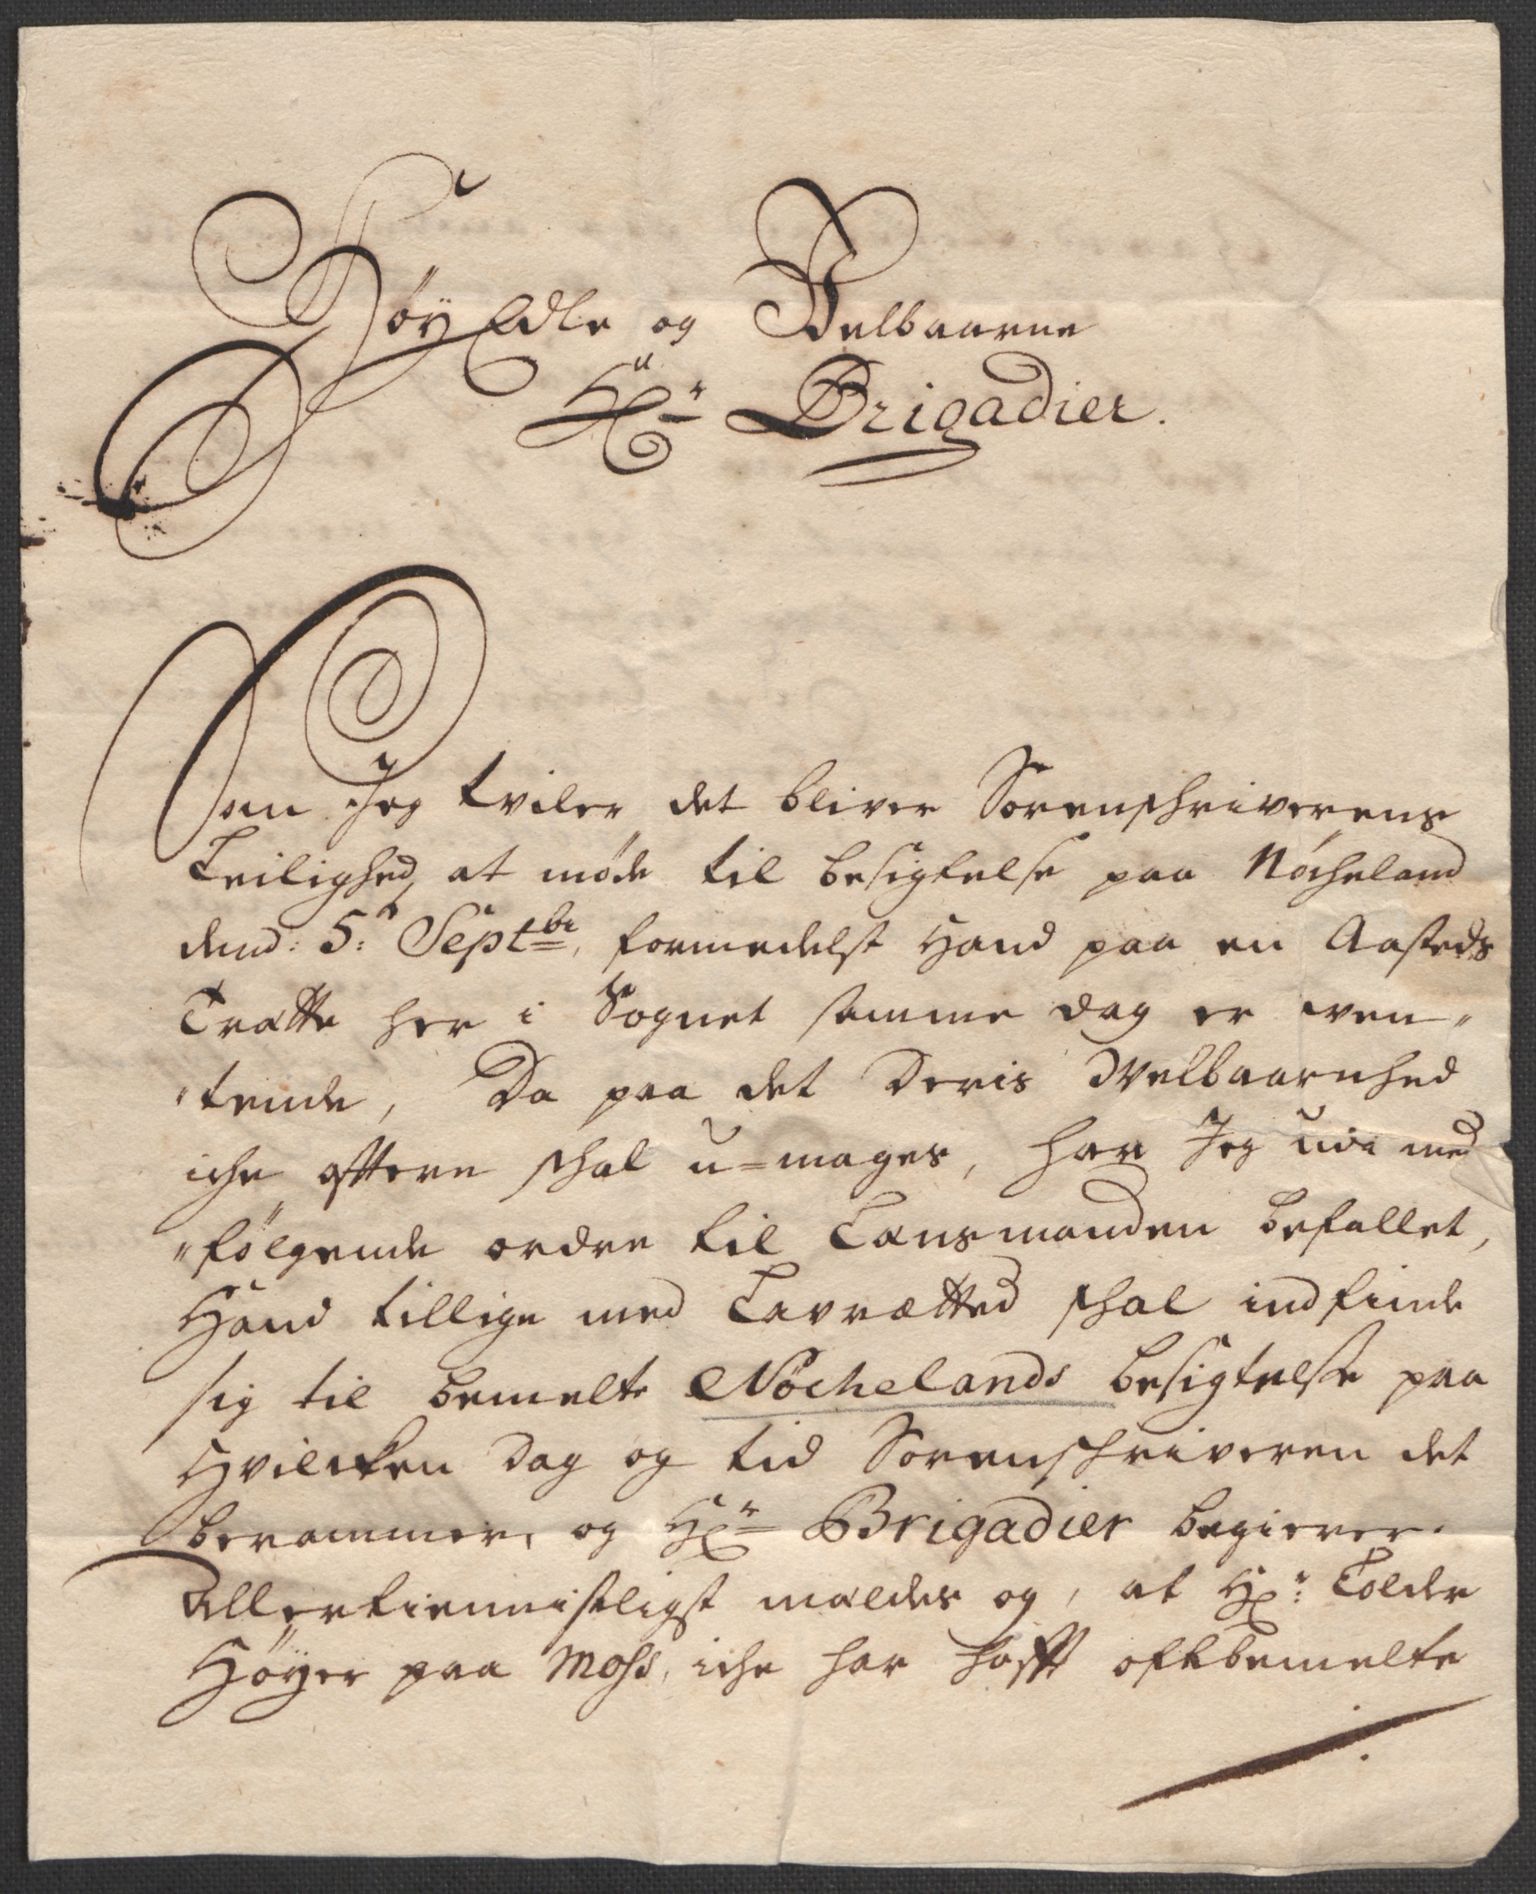 Høy Edle og Velbaarne
Hr Brigadier.
Som Jeg tviler det bliver Sorenschriverens
Leilighed, at møde til besigtelse paa Nöcheland
dend: 5: Septbr, formedelst Hand paa en Aasteds
Trætte her i Sognet samme dag er ven-
"tende, Da paa det Deris Welbaarnhed
iche oftere schal u-mages, har Jeg udi med
"følgende ordre til Lænsmanden befallet,
Hand tillige med Lavrætted schal indfinde
sig til bemelte Nöchelands besigtelse paa
Hvilcken Dag og tid Sorenschriveren det
berammer, og Hr Brigadier begierer.
Allertiennistligst mældes og, at Hr: Tolder
Høyer paa Moss, iche har hafft oftbemelte